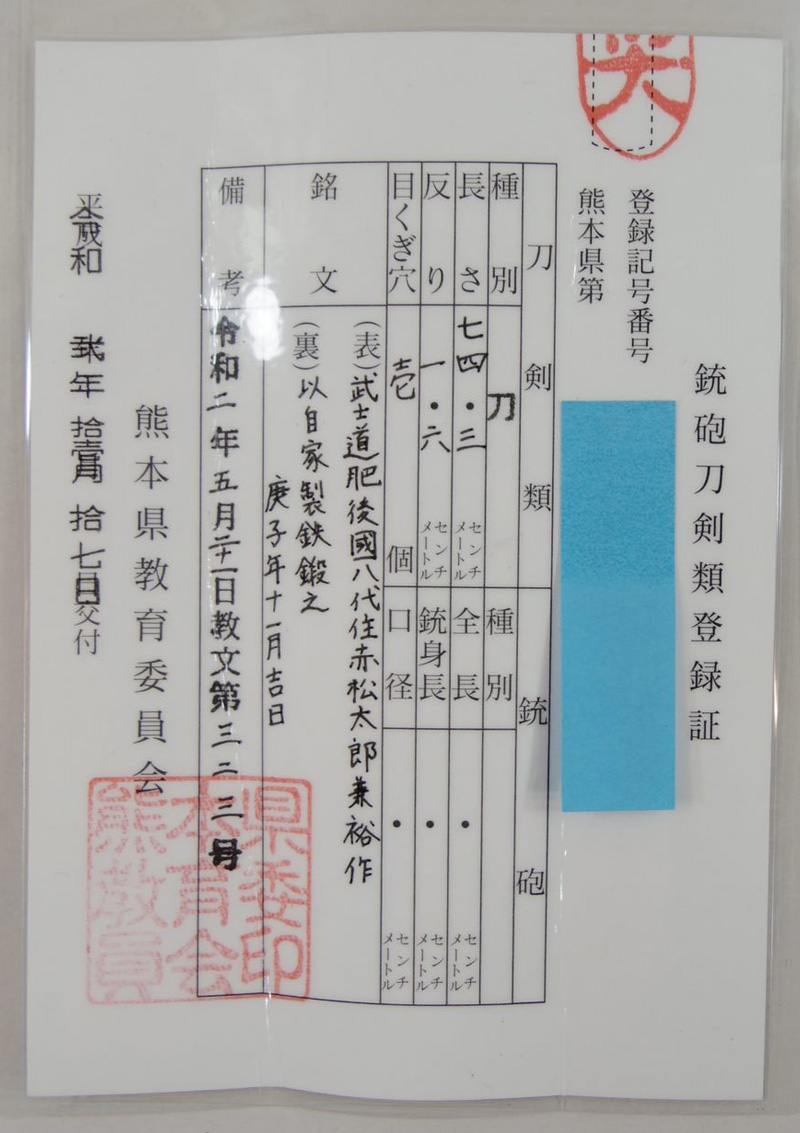 銃砲刀剣類登録証
登録記号番号
熊本県第
刀剣類
銃砲
種別
刀
種別
長さ
七四・三
センチメートル
全長
・
センチメートル
反り
一・六
センチメートル
銃身長
・
センチメートル
目くぎ穴
壱
個
口径
・
センチメートル
銘文
(表)武士道肥後國八代住赤松太郎兼裕作
(裏)以自家製鉄鍛之
庚子年十一月吉日
備考
令和二年五月二十一日教文第三二三号
熊本県教育委員会
令和弐年拾壱月拾七日交付
熊本県教育委員会印